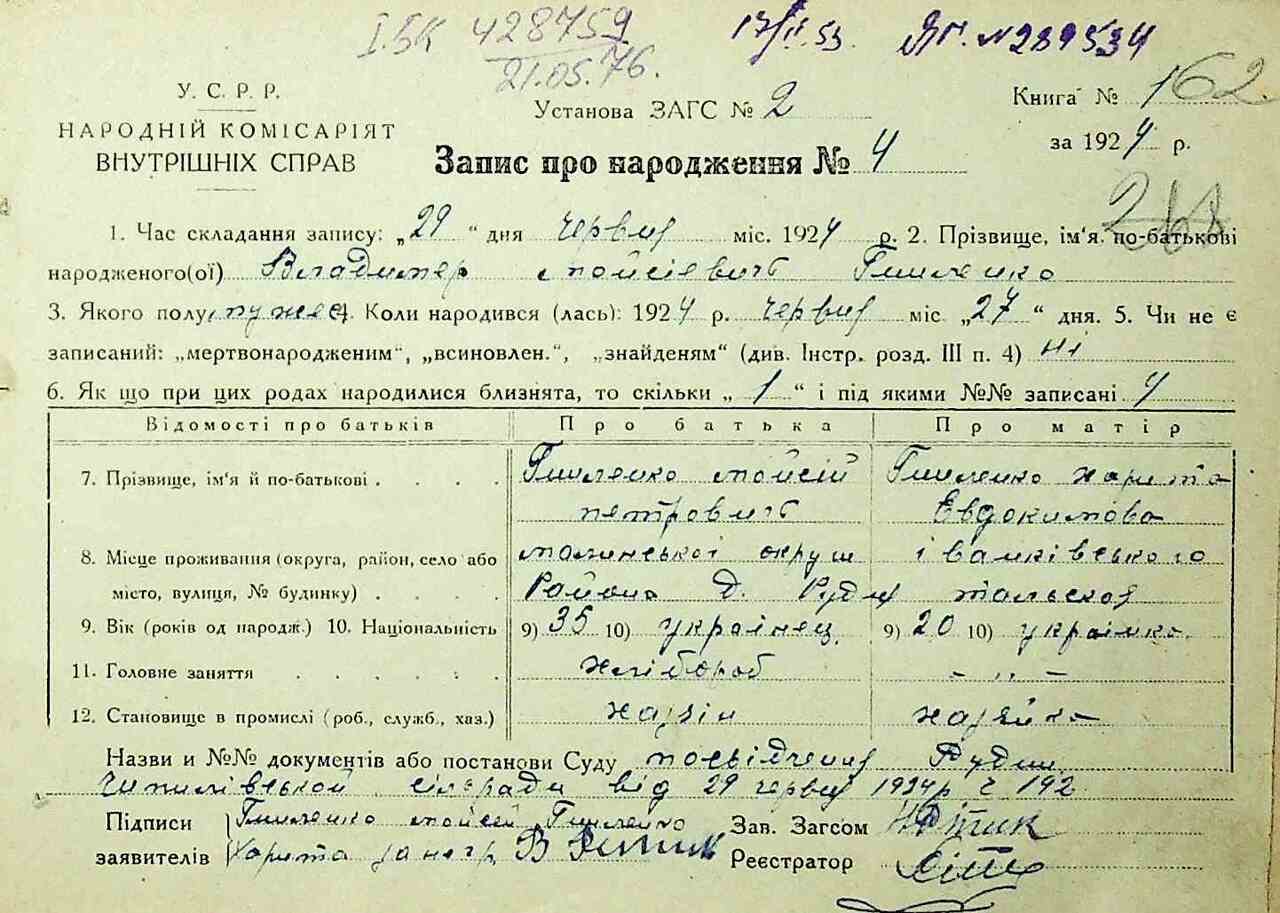 І.БК 428759
21.05.76.
17/II.53. ЯГ. №289534
У. С. Р. Р.
НАРОДНІЙ КОМІСАРІЯТ
ВНУТРІШНІХ СПРАВ
Установа ЗАГС № 2
Книга № 1 162
за 1924 р.
Запис про народження № 4
268
1. Час складання запису: „29“ дня червня міс. 1924 р. 2. Прізвище, ім'я. по-батькові
народженого(ої) Владимер Мойсієвичь Гмиленко
3. Якого полу, мужес 4. Коли народився (лась): 1924 р. червня міс „27“ дня. 5. Чи не є
записаний: „мертвонародженим“, „всиновлен.“, „знайденям“ (див. Інстр. розд. III п. 4) ні
6. Як що при цих родах народилися близнята, то скільки „ 1 “ і під якими №№ записані 4
Відомості про батьків Про батька Про матір
7. Прізвище, ім'я й по-батькові Гмиленко Мойсій Гмиленко Харита
петровичь Евдокимова
8. Місце проживання (округа, район, село або малинської округи іванківського
місто, вулиця, № будинку) Района Д. Рудня тальская
9. Вік (років од народж.) 10. Національність 9) 35 10) українец 9) 20 10) українка
11. Головне заняття хлібороб - „ -
12. Становище в промислі (роб., служб., хаз.) хазяін хазяйка
Назви и №№ документів або постанови Суду посвідчення Рудни
сілради від 29 червня 1924 р ч 192
Підписи Гмиленко Мойсей Гмиленко Зав. Загсом
заявителів Харита за негр В Реєстратор